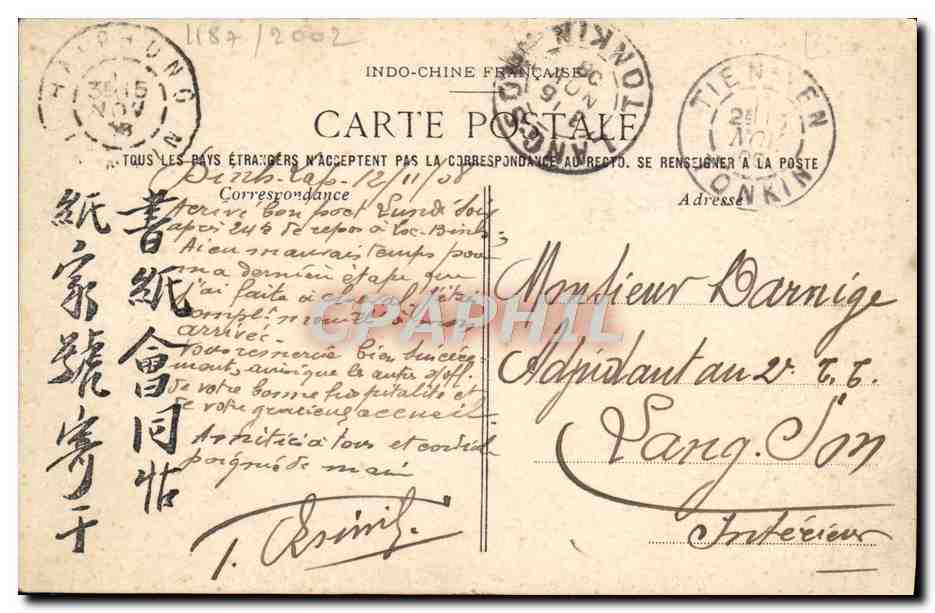 1187/2002
INDO-CHINE FRANÇAISE
CARTE POSTALE
TOUS LES PAYS ÉTRANGERS N'ACCEPTENT PAS LA CORRESPONDANCE AU RECTO. SE RENSEIGNER A LA POSTE
HAIPHONG
LANGSON TONKIN
TIEN-YEN TONKIN
Correspondance
Adresse
12/11/08
Arrivé bon port Lundi soir
après 24h de repos à Loc-Binh,
Ai eu mauvais temps pour
ma dernière étape que
j'ai faite à
arrivée.
Vous remercie bien sincère-
ments ainsi que les autres s/off.
de votre bonne hospitalité et
de votre gracieux accueil.
Amitiés à tous et cordiale
poignée de main
Monsieur Darnige
Adjudant au 2e T. T.
Lang. Son
Intérieur
書紙會同
紙家號寄于
CPAPHIL